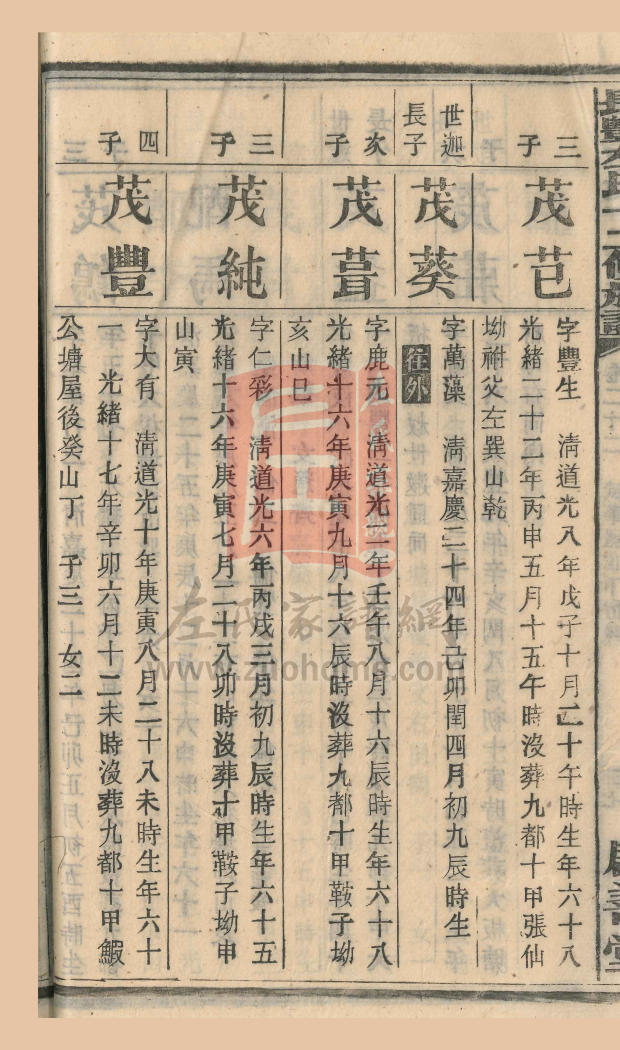 三子
茂芑
字豐生　淸道光八年戊子十月二十午時生年六十八
光緒二十二年丙申五月十五午時沒葬九都十甲張仙
坳祔父左巽山乾
世迦
長子
茂葵
字萬藻　淸嘉慶二十四年己卯閏四月初九辰時生
往外
次子
茂葺
字鹿元　淸道光二年壬午八月十六辰時生年六十八
光緒十六年庚寅九月十六辰時沒葬九都十甲鞍子坳
亥山巳
三子
茂純
字仁彩　淸道光六年丙戌三月初九辰時生年六十五
光緒十六年庚寅七月二十八卯時沒葬十甲鞍子坳申
山寅
四子
茂豐
字大有　淸道光十年庚寅八月二十八未時生年六十
一　光緒十七年辛卯六月十二未時沒葬九都十甲鰕
公塘屋後癸山丁　子三　女二
左氏家譜網
www.zuohome.com